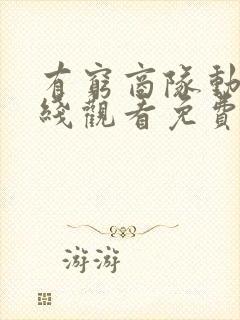 有窮商隊動
綫觀看免費
游游